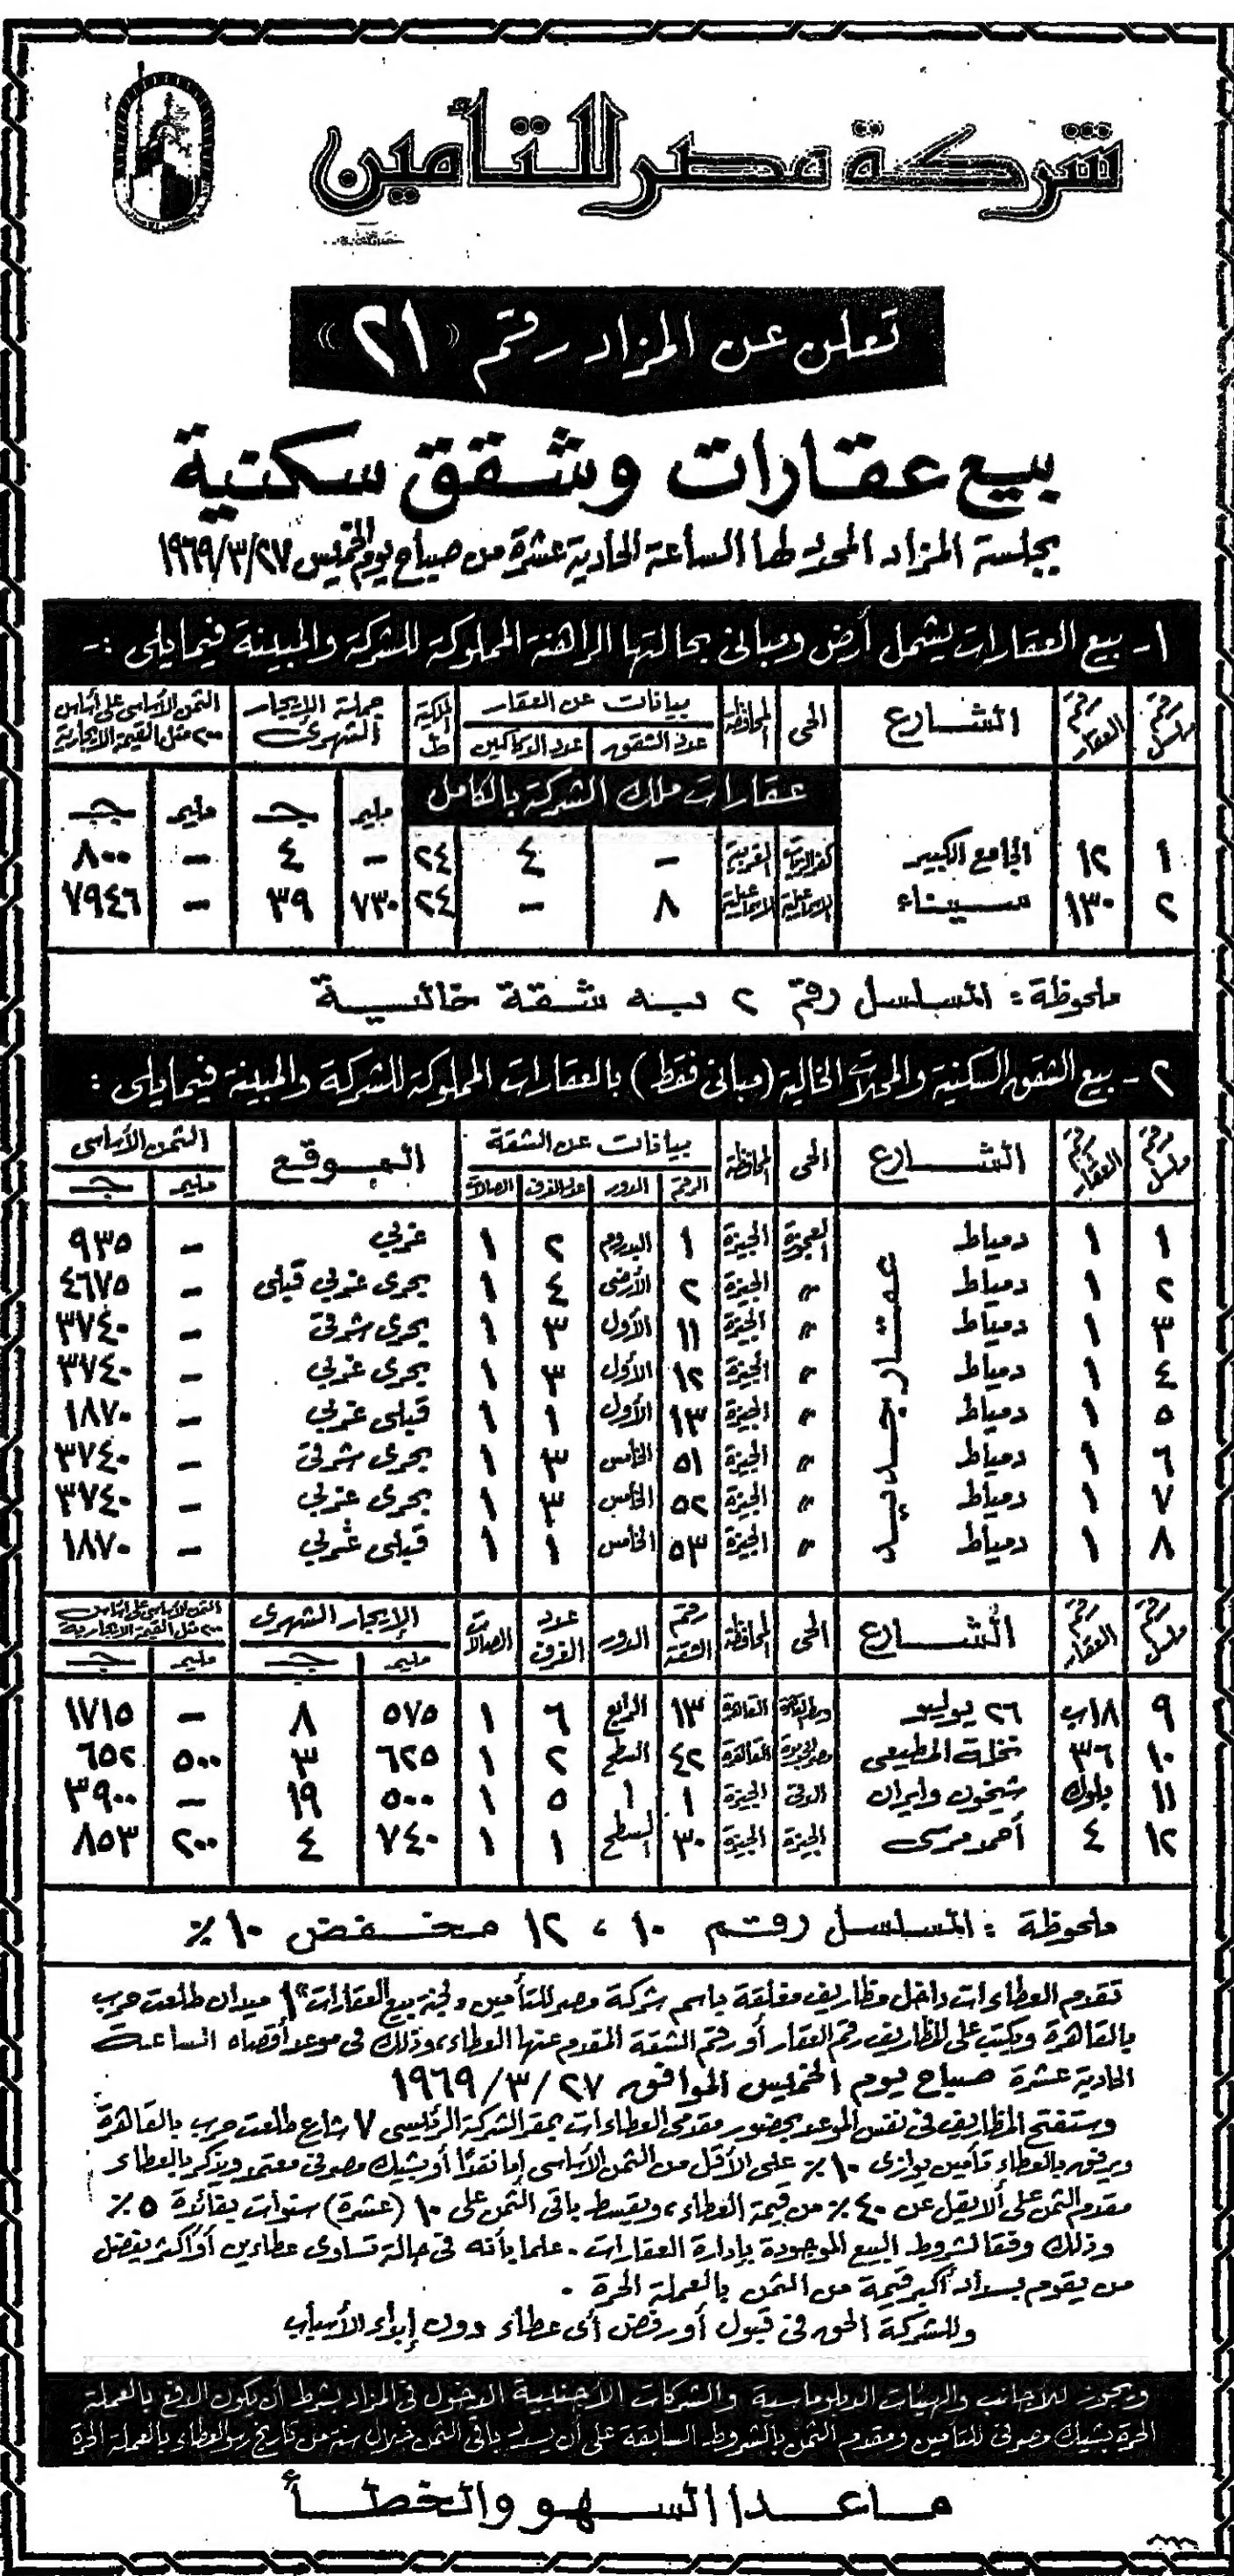 شركة مصر للتأمين
تعلن عن المزاد رقم «٢١»
بيع عقارات وشقق سكنية
بجلسة المزاد المحدد لها الساعة الحادية عشرة من صباح يوم الخميس ١٩٦٩/٣/٢٧
١- بيع العقارات يشمل أرض ومبانى بحالتها الراهنة المملوكة للشركة والمبينة فيمايلى :-
رقم مسلسل | رقم العقار | الشارع | الحى | المحافظة | بيانات عن العقار | الملكية ط | جملة الإيجار الشهرى | الثمن الأساسى على أساس ٢٠٠ مثل القيمة الايجارية
عدد الشقق | عدد الدكاكين
عقارات ملك الشركة بالكامل
مليم | جـ | مليم | جـ
١ | ١٢ | الجامع الكبير | كفر الزيات | الغربية | - | ٤ | ٢٤ | - | ٤ | - | ٨٠٠
٢ | ١٣٠ | سيناء | الاسماعيلية | الاسماعيلية | ٨ | - | ٢٤ | ٧٣٠ | ٣٩ | - | ٧٩٤٦
ملحوظة : المسلسل رقم ٢ به شقة خالية
٢- بيع الشقق السكنية والمحلات الخالية (مبانى فقط) بالعقارات المملوكة للشركة والمبينة فيمايلى :
رقم مسلسل | رقم العقار | الشارع | الحى | المحافظة | بيانات عن الشقة | الموقع | الثمن الأساسى
الرقم | الدور | عدد الغرف | الصالات | مليم | جـ
عقار جديد
١ | ١ | دمياط | العجوزة | الجيزة | ١ | البدروم | ٢ | ١ | غربي | - | ٩٣٥
٢ | ١ | دمياط | " | الجيزة | ٢ | الأرضى | ٤ | ١ | بحرى غربي قبلى | - | ٤٦٧٥
٣ | ١ | دمياط | " | الجيزة | ١١ | الأول | ٣ | ١ | بحرى شرقى | - | ٣٧٤٠
٤ | ١ | دمياط | " | الجيزة | ١٢ | الأول | ٣ | ١ | بحرى غربي | - | ٣٧٤٠
٥ | ١ | دمياط | " | الجيزة | ١٣ | الأول | ١ | ١ | قبلى غربي | - | ١٨٧٠
٦ | ١ | دمياط | " | الجيزة | ٥١ | الخامس | ٣ | ١ | بحرى شرقى | - | ٣٧٤٠
٧ | ١ | دمياط | " | الجيزة | ٥٢ | الخامس | ٣ | ١ | بحرى غربي | - | ٣٧٤٠
٨ | ١ | دمياط | " | الجيزة | ٥٣ | الخامس | ١ | ١ | قبلى غربي | - | ١٨٧٠
رقم مسلسل | رقم العقار | الشارع | الحى | المحافظة | رقم الشقة | الدور | عدد الغرف | الصالات | الإيجار الشهرى | الثمن الأساسى على أساس ٢٠٠ مثل القيمة الايجارية
مليم | جـ | مليم | جـ
٩ | ١٨ب | ٢٦ يوليو | وسط القاهرة | القاهرة | ١٣ | الرابع | ٦ | ١ | ٥٧٥ | ٨ | - | ١٧١٥
١٠ | ٣٦ | نخلة المطيعى | مصر الجديدة | القاهرة | ٤٢ | السطح | ٢ | ١ | ٦٢٥ | ٣ | ٥٠٠ | ٦٥٢
١١ | بلوك | شيخون وايران | الدقى | الجيزة | ١ | ١ | ٥ | ١ | ٥٠٠ | ١٩ | - | ٣٩٠٠
١٢ | ٤ | أحمد مرسى | الجيزة | الجيزة | ٣٠ | السطح | ١ | ١ | ٧٤٠ | ٤ | ٢٠٠ | ٨٥٣
ملحوظة : المسلسل رقم ١٠ ، ١٢ مخفض ١٠٪
تقدم العطاءات داخل مظاريف مغلقة باسم شركة مصر للتأمين "لجنة بيع العقارات" ٦ ميدان طلعت حرب
بالقاهرة ويكتب على المظاريف رقم العقار أو رقم الشقة المقدم عنها العطاء، وذلك فى موعد أقصاه الساعة
الحادية عشرة صباح يوم الخميس الموافق ٢٧ /٣/ ١٩٦٩
وستفتح المظاريف فى نفس الموعد بحضور مقدمى العطاءات بمقر الشركة الرئيسى ٧ شارع طلعت حرب بالقاهرة
ويرفق بالعطاء تأمين يوازى ١٠٪ على الأقل من الثمن الأساسى إما نقدًا أو بشيك مصرفى معتمد ويذكر بالعطاء
مقدم الثمن على ألا يقل عن ٤٠٪ من قيمة العطاء، ويقسط باقى الثمن على ١٠ (عشرة) سنوات بفائدة ٥٪
وذلك وفقا لشروط البيع الموجودة بإدارة العقارات - علما بأنه فى حالة تساوى عطاءين أو أكثر يفضل
من يقوم بسداد أكبر قيمة من الثمن بالعملة الحرة .
وللشركة الحق فى قبول أو رفض أى عطاء دون إبداء الأسباب
ويجوز للأجانب والهيئات الدبلوماسية والشركات الأجنبية الدخول فى المزاد بشرط أن يكون الدفع بالعملة
الحرة بشيك مصرفى للتأمين ومقدم الثمن بالشروط السابقة على أن يسدد باقى الثمن خلال سنة من تاريخ رسو العطاء بالعملة الحرة
ماعدا السهو والخطأ